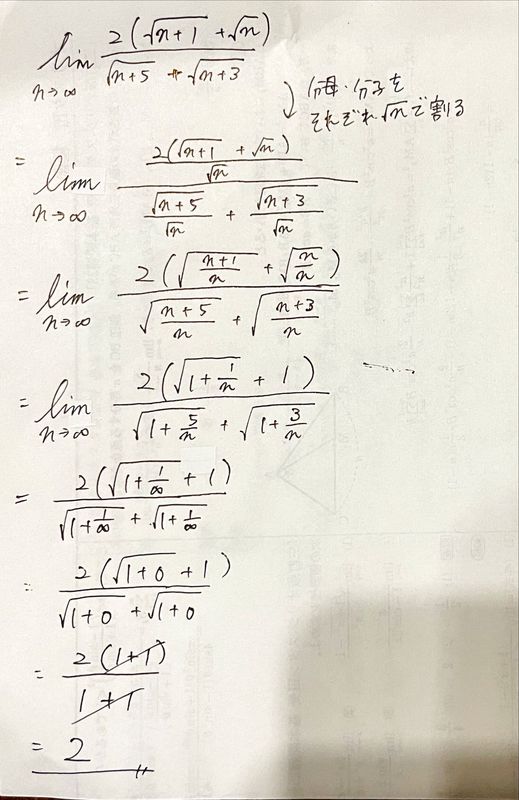 lim n→∞ 2(√(n+1) + √n) / (√(n+5) + √(n+3))
分母・分子を
それぞれ√nで割る
= lim n→∞ (2(√(n+1) + √n)/√n) / (√(n+5)/√n + √(n+3)/√n)
= lim n→∞ 2(√((n+1)/n) + √(n/n)) / (√((n+5)/n) + √((n+3)/n))
= lim n→∞ 2(√(1+1/n) + 1) / (√(1+5/n) + √(1+3/n))
= 2(√(1+1/∞) + 1) / (√(1+1/∞) + √(1+1/∞))
= 2(√(1+0) + 1) / (√(1+0) + √(1+0))
= 2(1+1) / (1+1)
= 2